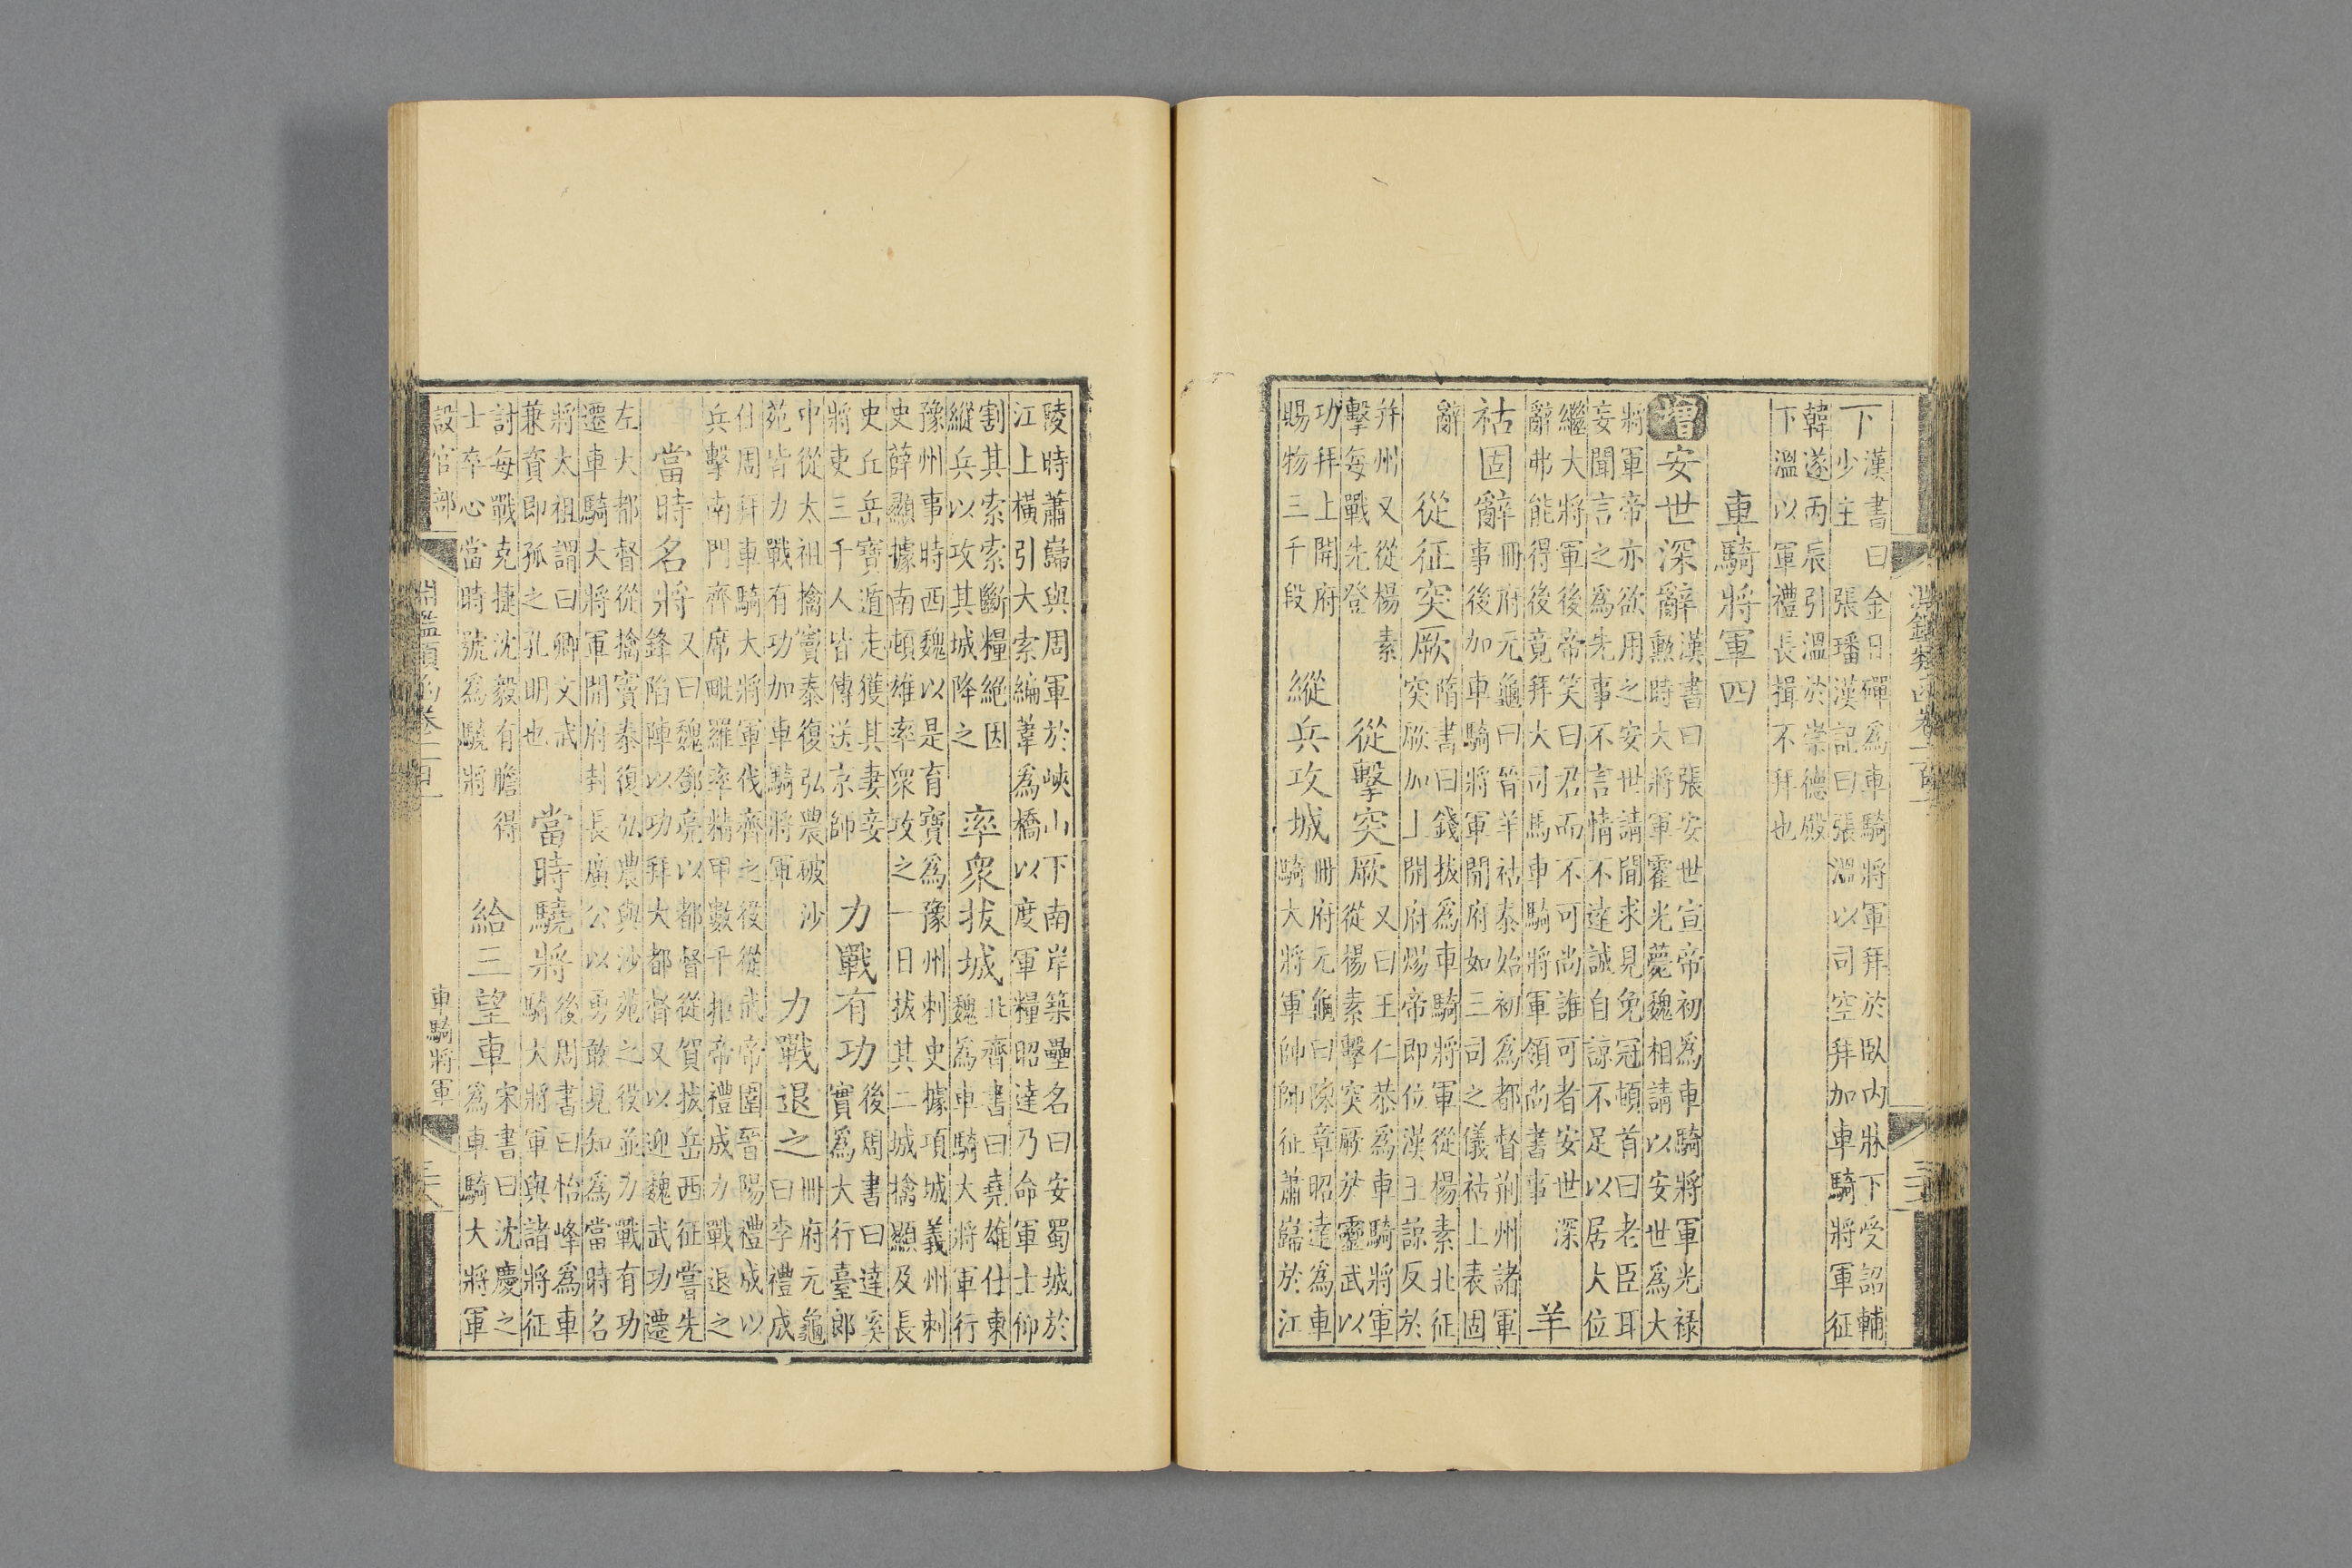 下
漢書曰金日磾為車騎將軍拜於臥內牀下受詔輔
少主　張璠漢記曰張溫以司空拜加車騎將軍征
韓遂丙辰引溫於崇德殿
下溫以軍禮長揖不拜也
車騎將軍四
增安世深辭
漢書曰張安世宣帝初為車騎將軍光祿
勲時大將軍霍光薨魏相請以安世為大
將軍帝亦欲用之安世請間求見免冠頓首曰老臣耳
妄聞言之為先事不言情不達誠自諒不足以居大位
繼大將軍後帝笑曰君而不可尚誰可者安世深
辭弗能得後竟拜大司馬車騎將軍領尚書事
羊
祜固辭
冊府元龜曰晉羊祜泰始初為都督荊州諸軍
事後加車騎將軍開府如三司之儀祜上表固
辭
從征突厥
隋書曰錢拔為車騎將軍從楊素北征
突厥加上開府煬帝即位漢王諒反於
并州又從楊素
擊每戰先登
從擊突厥
又曰王仁恭為車騎將軍
從楊素擊突厥於靈武以
功拜上開府
賜物三千段
縱兵攻城
冊府元龜曰陳章昭達為車
騎大將軍帥師征蕭巋於江
陵時蕭巋與周軍於峽山下南岸築壘名曰安蜀城於
江上橫引大索編葦為橋以度軍糧昭達乃命軍士仰
割其索索斷糧絕因
縱兵以攻其城降之
率衆拔城
北齊書曰堯雄仕東
魏為車騎大將軍行
豫州事時西魏以是育寶為豫州刺史據項城義州刺
史薛顯據南頓雄率衆攻之一日拔其二城擒顯及長
史丘岳寶遁走獲其妻妾
將吏三千人皆傳送京師
力戰有功
後周書曰達奚
寔為大行臺郎
中從太祖擒竇泰復弘農破沙
苑皆力戰有功加車騎將軍
力戰退之
冊府元龜
曰李禮成
仕周拜車騎大將軍伐齊之役從武帝圍晉陽禮成以
兵擊南門齊席毗羅率精甲數千拒帝禮成力戰退之
當時名將
又曰魏鄧亮以都督從賀拔岳西征嘗先
鋒陷陣以功拜大都督又以迎魏武功遷
左大都督從擒竇泰復弘農與沙苑之役並力戰有功
遷車騎大將軍開府封長廣公以勇敢見知為當時名
將太祖謂曰卿文武
兼資即孤之孔明也
當時驍將
後周書曰怡峰為車
騎大將軍與諸將征
討每戰克捷沈毅有膽得
士卒心當時號為驍將
給三望車
宋書曰沈慶之
為車騎大將軍
設官部
淵鑑類函卷一百
車騎將軍